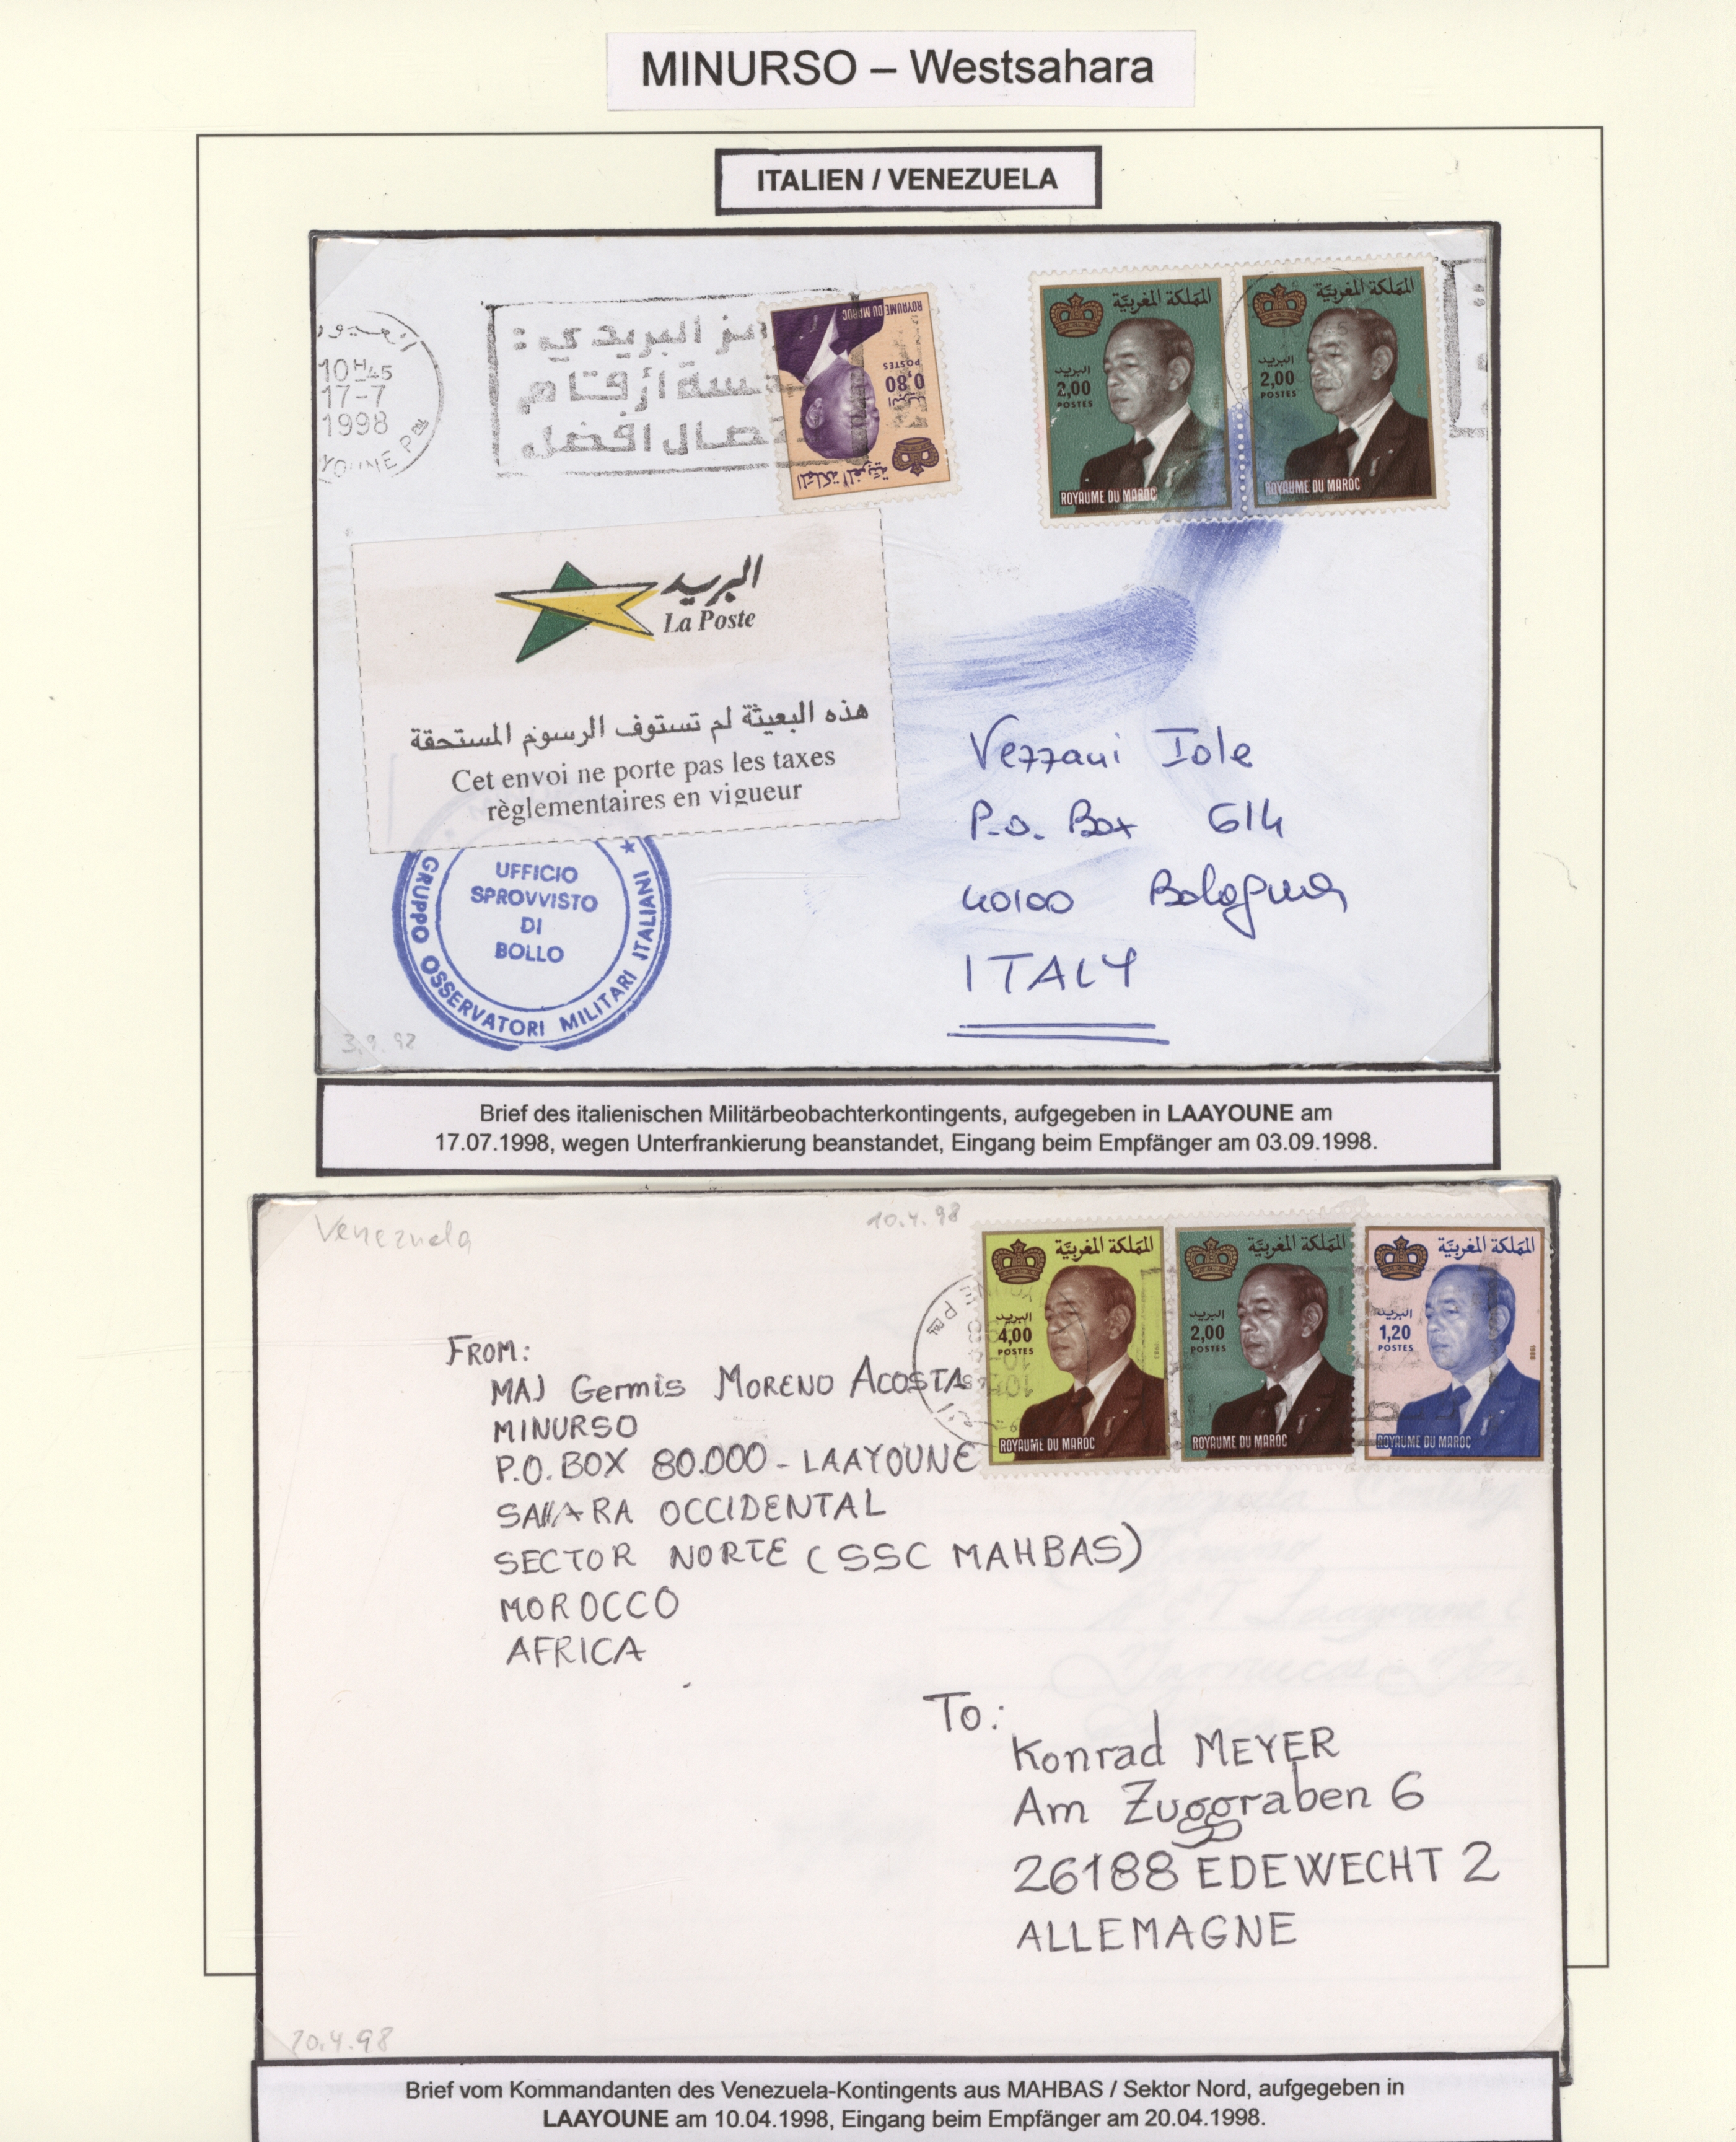 MINURSO – Westsahara
ITALIEN / VENEZUELA
10H45
17-7
1998
البريدي
أرقام
افضل
المملكة المغربية
البريد
0,80
POSTES
ROYAUME DU MAROC
المملكة المغربية
البريد
2,00
POSTES
ROYAUME DU MAROC
المملكة المغربية
البريد
2,00
POSTES
ROYAUME DU MAROC
البريد
La Poste
هذه البعيثة لم تستوف الرسوم المستحقة
Cet envoi ne porte pas les taxes
règlementaires en vigueur
UFFICIO
SPROVVISTO
DI
BOLLO
GRUPPO OSSERVATORI MILITARI ITALIANI
Vezzani Iole
P.O. Box 614
40100 Bologna
ITALY
3.9.98
Brief des italienischen Militärbeobachterkontingents, aufgegeben in LAAYOUNE am
17.07.1998, wegen Unterfrankierung beanstandet, Eingang beim Empfänger am 03.09.1998.
Venezuela
10.4.98
المملكة المغربية
البريد
4,00
POSTES
ROYAUME DU MAROC
المملكة المغربية
البريد
2,00
POSTES
ROYAUME DU MAROC
المملكة المغربية
البريد
1,20
POSTES
ROYAUME DU MAROC
FROM:
MAJ Germis MORENO ACOSTA
MINURSO
P.O. BOX 80.000 - LAAYOUNE
SAHARA OCCIDENTAL
SECTOR NORTE (SSC MAHBAS)
MOROCCO
AFRICA
To:
Konrad MEYER
Am Zuggraben 6
26188 EDEWECHT 2
ALLEMAGNE
20.4.98
Brief vom Kommandanten des Venezuela-Kontingents aus MAHBAS / Sektor Nord, aufgegeben in
LAAYOUNE am 10.04.1998, Eingang beim Empfänger am 20.04.1998.